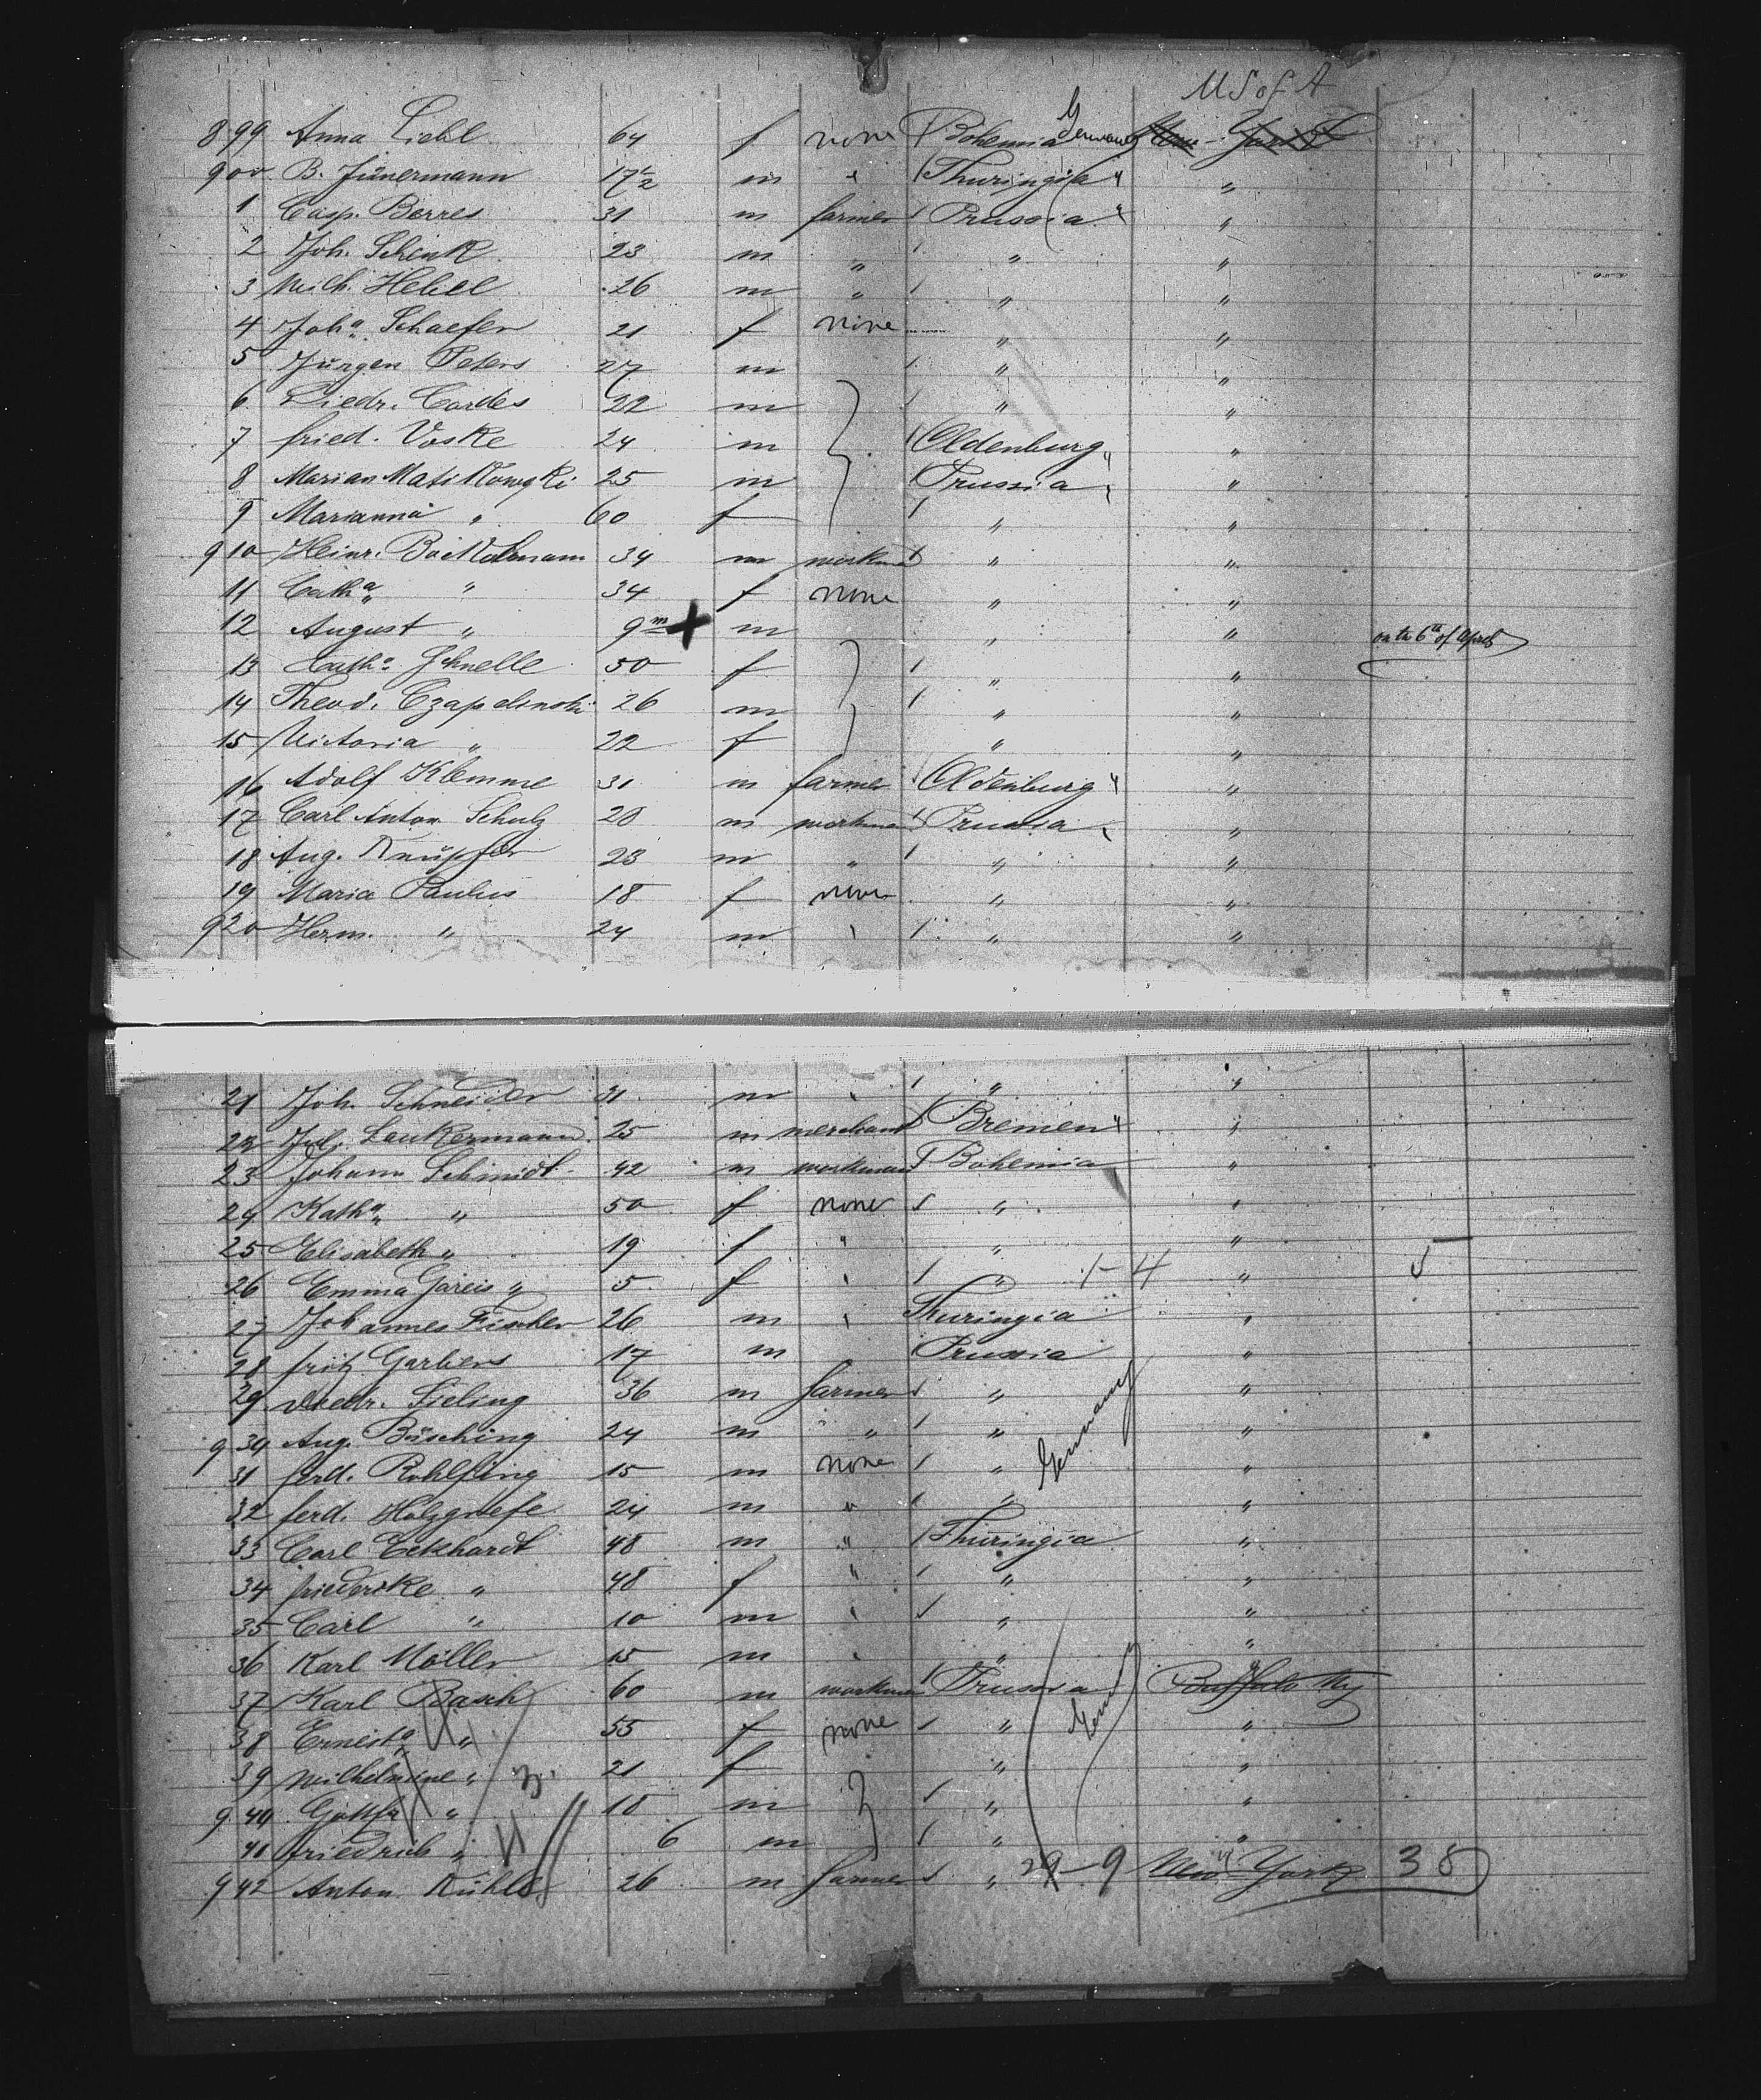 U S of A
899 Anna Liebl 64 f none Bohemia Germany New-York
900 B. Jünermann 17 1/2 m " Thuringia " "
1 Casp. Berres 31 m farmer Prussia " "
2 Joh. Schenk 23 m " " "
3 Wilh. Hebel 26 m " " "
4 Joha. Schaefer 21 f none " "
5 Jürgen Peters 27 m " "
6 Diedr. Cordes 22 m " "
7 fried. Voske 24 m Oldenburg " "
8 Marian 25 m Prussia " "
9 Marianna " 60 f " "
910 Heinr. 34 m workman " "
11 Catha. " 34 f none " "
12 August " 9m + m " " on the 6th of April
13 Catha. Schnelle 50 f " "
14 Theod. Czapelinski 26 m " "
15 Victoria " 22 f " "
16 Adolf Klemme 31 m farmer Oldenburg " "
17 Carl Anton Schulz 20 m workman Prussia " "
18 Aug. Knüpfer 23 m " " "
19 Maria Paulus 18 f none " "
920 Herm. " 24 m " " "
21 Joh. Schneider 31 m " " "
22 Jul. Lankermann 25 m merchant Bremen " "
23 Johann Schmidt 42 m workman Bohemia "
24 Katha. " 50 f none " "
25 Elisabeth " 19 f " " "
26 Emma Gareis " 5 f " " 1-4 "
27 Johannes Fischer 26 m " Thuringia "
28 fritz Garbers 17 m Prussia "
29 Diedr. Sieling 36 m farmer " "
930 Aug. Büsching 24 m " " Germany "
31 ferd. Rohlfing 15 m none " "
32 ferd. Holzgrefe 24 m " " "
33 Carl Eckhardt 48 m " Thuringia "
34 friederike " 48 f " " "
35 Carl " 10 m " " "
36 Karl Möller 15 m " " "
37 Karl Basch 60 m workman Prussia Germany Buffalo NY
38 " 55 f none " "
39 Wilhelmine " 21 f " "
940 " 18 m " "
41 friedrich " 6 m " "
942 Anton Kühle 26 m farmer " 29-9 New York 38